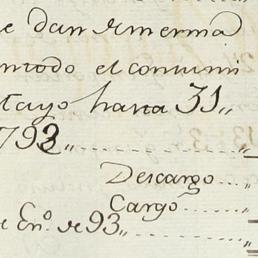 e dan Ê merma
en todo el consumi
Mayo hasta 31,,
1793,,
Descargo
Cargo
de En.º de 93,,